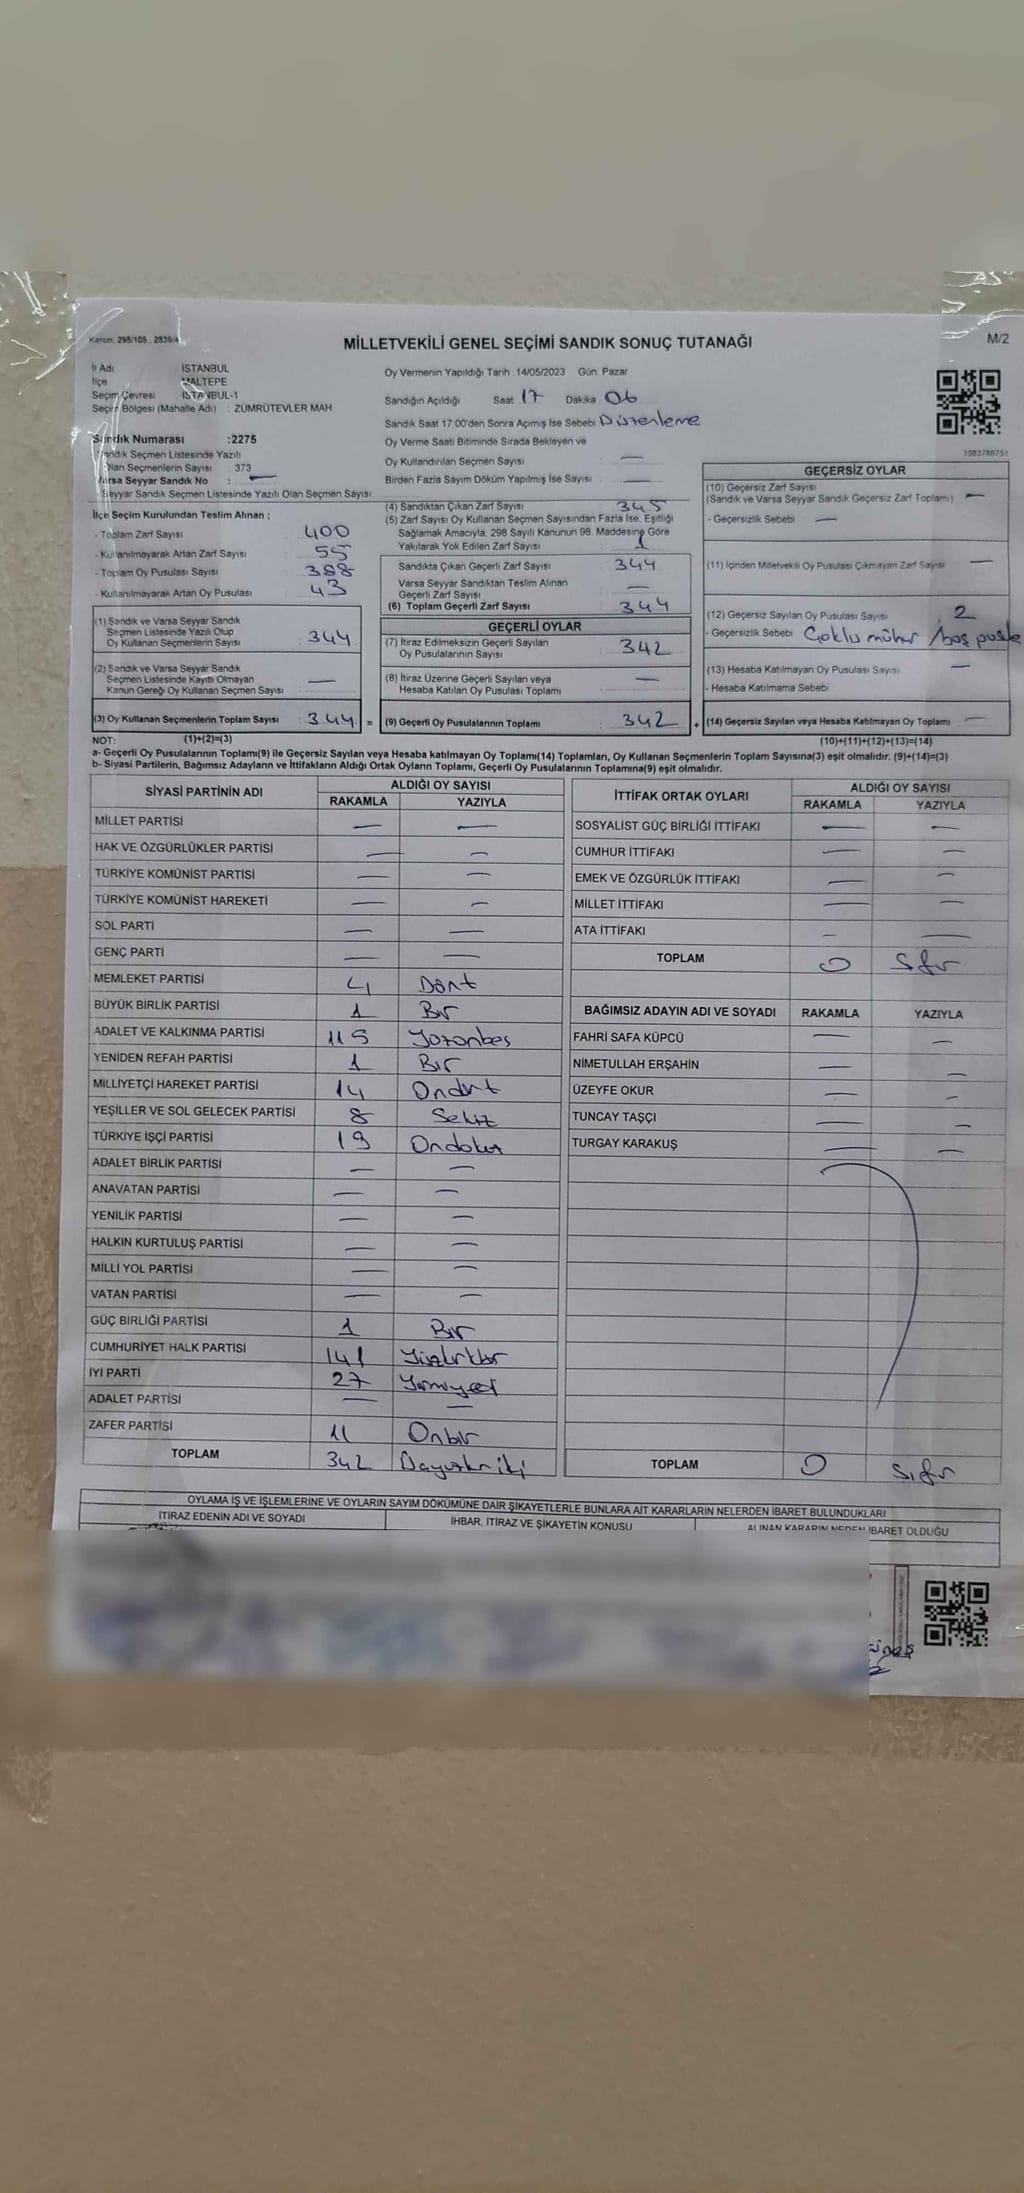 Kanun: 298/105 , 2839/4
MİLLETVEKİLİ GENEL SEÇİMİ SANDIK SONUÇ TUTANAĞI
M/2
İl Adı İSTANBUL
İlçe MALTEPE
Seçim Çevresi İSTANBUL-1
Seçim Bölgesi (Mahalle Adı) : ZÜMRÜTEVLER MAH.
Oy Vermenin Yapıldığı Tarih : 14/05/2023 Gün: Pazar
Sandığın Açıldığı Saat 17 Dakika 06
Sandık Saat 17:00'den Sonra Açımış İse Sebebi Düzenleme
Oy Verme Saati Bitiminde Sırada Bekleyen ve
Oy Kullandırılan Seçmen Sayısı —
Birden Fazla Sayım Döküm Yapılmış İse Sayısı —
Sandık Numarası :2275
Sandık Seçmen Listesinde Yazılı
Olan Seçmenlerin Sayısı : 373
Varsa Seyyar Sandık No : —
Seyyar Sandık Seçmen Listesinde Yazılı Olan Seçmen Sayısı
1083786751
İlçe Seçim Kurulundan Teslim Alınan :
- Toplam Zarf Sayısı : 400
- Kullanılmayarak Artan Zarf Sayısı : 55
- Toplam Oy Pusulası Sayısı : 388
- Kullanılmayarak Artan Oy Pusulası : 43
(1) Sandık ve Varsa Seyyar Sandık
Seçmen Listesinde Yazılı Olup
Oy Kullanan Seçmenlerin Sayısı : 344
(2) Sandık ve Varsa Seyyar Sandık
Seçmen Listesinde Kayıtlı Olmayan
Kanun Gereği Oy Kullanan Seçmen Sayısı : —
(3) Oy Kullanan Seçmenlerin Toplam Sayısı : 344 =
(4) Sandıktan Çıkan Zarf Sayısı : 345
(5) Zarf Sayısı Oy Kullanan Seçmen Sayısından Fazla İse, Eşitliği
Sağlamak Amacıyla; 298 Sayılı Kanunun 98. Maddesine Göre
Yakılarak Yok Edilen Zarf Sayısı : 1
Sandıkta Çıkan Geçerli Zarf Sayısı : 344
Varsa Seyyar Sandıktan Teslim Alınan
Geçerli Zarf Sayısı : —
(6) Toplam Geçerli Zarf Sayısı : 344
GEÇERLİ OYLAR
(7) İtiraz Edilmeksizin Geçerli Sayılan
Oy Pusulalarının Sayısı : 342
(8) İtiraz Üzerine Geçerli Sayılan veya
Hesaba Katılan Oy Pusulası Toplamı : —
(9) Geçerli Oy Pusulalarının Toplamı : 342 +
GEÇERSİZ OYLAR
(10) Geçersiz Zarf Sayısı
(Sandık ve Varsa Seyyar Sandık Geçersiz Zarf Toplamı) —
- Geçersizlik Sebebi —
(11) İçinden Milletvekili Oy Pusulası Çıkmayan Zarf Sayısı —
(12) Geçersiz Sayılan Oy Pusulası Sayısı 2
- Geçersizlik Sebebi Çoklu mühür / boş
(13) Hesaba Katılmayan Oy Pusulası Sayısı —
- Hesaba Katılmama Sebebi
(14) Geçersiz Sayılan veya Hesaba Katılmayan Oy Toplamı —
NOT: (1)+(2)=(3)
(10)+(11)+(12)+(13)=(14)
a- Geçerli Oy Pusulalarının Toplamı(9) ile Geçersiz Sayılan veya Hesaba katılmayan Oy Toplamı(14) Toplamları, Oy Kullanan Seçmenlerin Toplam Sayısına(3) eşit olmalıdır. (9)+(14)=(3)
b- Siyasi Partilerin, Bağımsız Adayların ve İttifakların Aldığı Ortak Oyların Toplamı, Geçerli Oy Pusulalarının Toplamına(9) eşit olmalıdır.
SİYASİ PARTİNİN ADI ALDIĞI OY SAYISI
RAKAMLA YAZIYLA
MİLLET PARTİSİ — —
HAK VE ÖZGÜRLÜKLER PARTİSİ — —
TÜRKİYE KOMÜNİST PARTİSİ — —
TÜRKİYE KOMÜNİST HAREKETİ — —
SOL PARTİ — —
GENÇ PARTİ — —
MEMLEKET PARTİSİ 4 Dört
BÜYÜK BİRLİK PARTİSİ 1 Bir
ADALET VE KALKINMA PARTİSİ 115 Yüzonbeş
YENİDEN REFAH PARTİSİ 1 Bir
MİLLİYETÇİ HAREKET PARTİSİ 14 Ondört
YEŞİLLER VE SOL GELECEK PARTİSİ 8 Sekiz
TÜRKİYE İŞÇİ PARTİSİ 19 Ondokuz
ADALET BİRLİK PARTİSİ — —
ANAVATAN PARTİSİ — —
YENİLİK PARTİSİ — —
HALKIN KURTULUŞ PARTİSİ — —
MİLLİ YOL PARTİSİ — —
VATAN PARTİSİ — —
GÜÇ BİRLİĞİ PARTİSİ 1 Bir
CUMHURİYET HALK PARTİSİ 141 Yüzkırkbir
İYİ PARTİ 27 Yirmiyedi
ADALET PARTİSİ — —
ZAFER PARTİSİ 11 Onbir
TOPLAM 342 Üçyüzkırkiki
İTTİFAK ORTAK OYLARI ALDIĞI OY SAYISI
RAKAMLA YAZIYLA
SOSYALİST GÜÇ BİRLİĞİ İTTİFAKI — —
CUMHUR İTTİFAKI — —
EMEK VE ÖZGÜRLÜK İTTİFAKI — —
MİLLET İTTİFAKI — —
ATA İTTİFAKI — —
TOPLAM 0 Sıfır
BAĞIMSIZ ADAYIN ADI VE SOYADI RAKAMLA YAZIYLA
FAHRİ SAFA KÜPCÜ — —
NİMETULLAH ERŞAHİN — —
ÜZEYFE OKUR — —
TUNCAY TAŞÇI — —
TURGAY KARAKUŞ — —
TOPLAM 0 Sıfır
OYLAMA İŞ VE İŞLEMLERİNE VE OYLARIN SAYIM DÖKÜMÜNE DAİR ŞİKAYETLERLE BUNLARA AİT KARARLARIN NELERDEN İBARET BULUNDUKLARI
İTİRAZ EDENİN ADI VE SOYADI İHBAR, İTİRAZ VE ŞİKAYETİN KONUSU ALINAN KARARIN NEDEN İBARET OLDUĞU